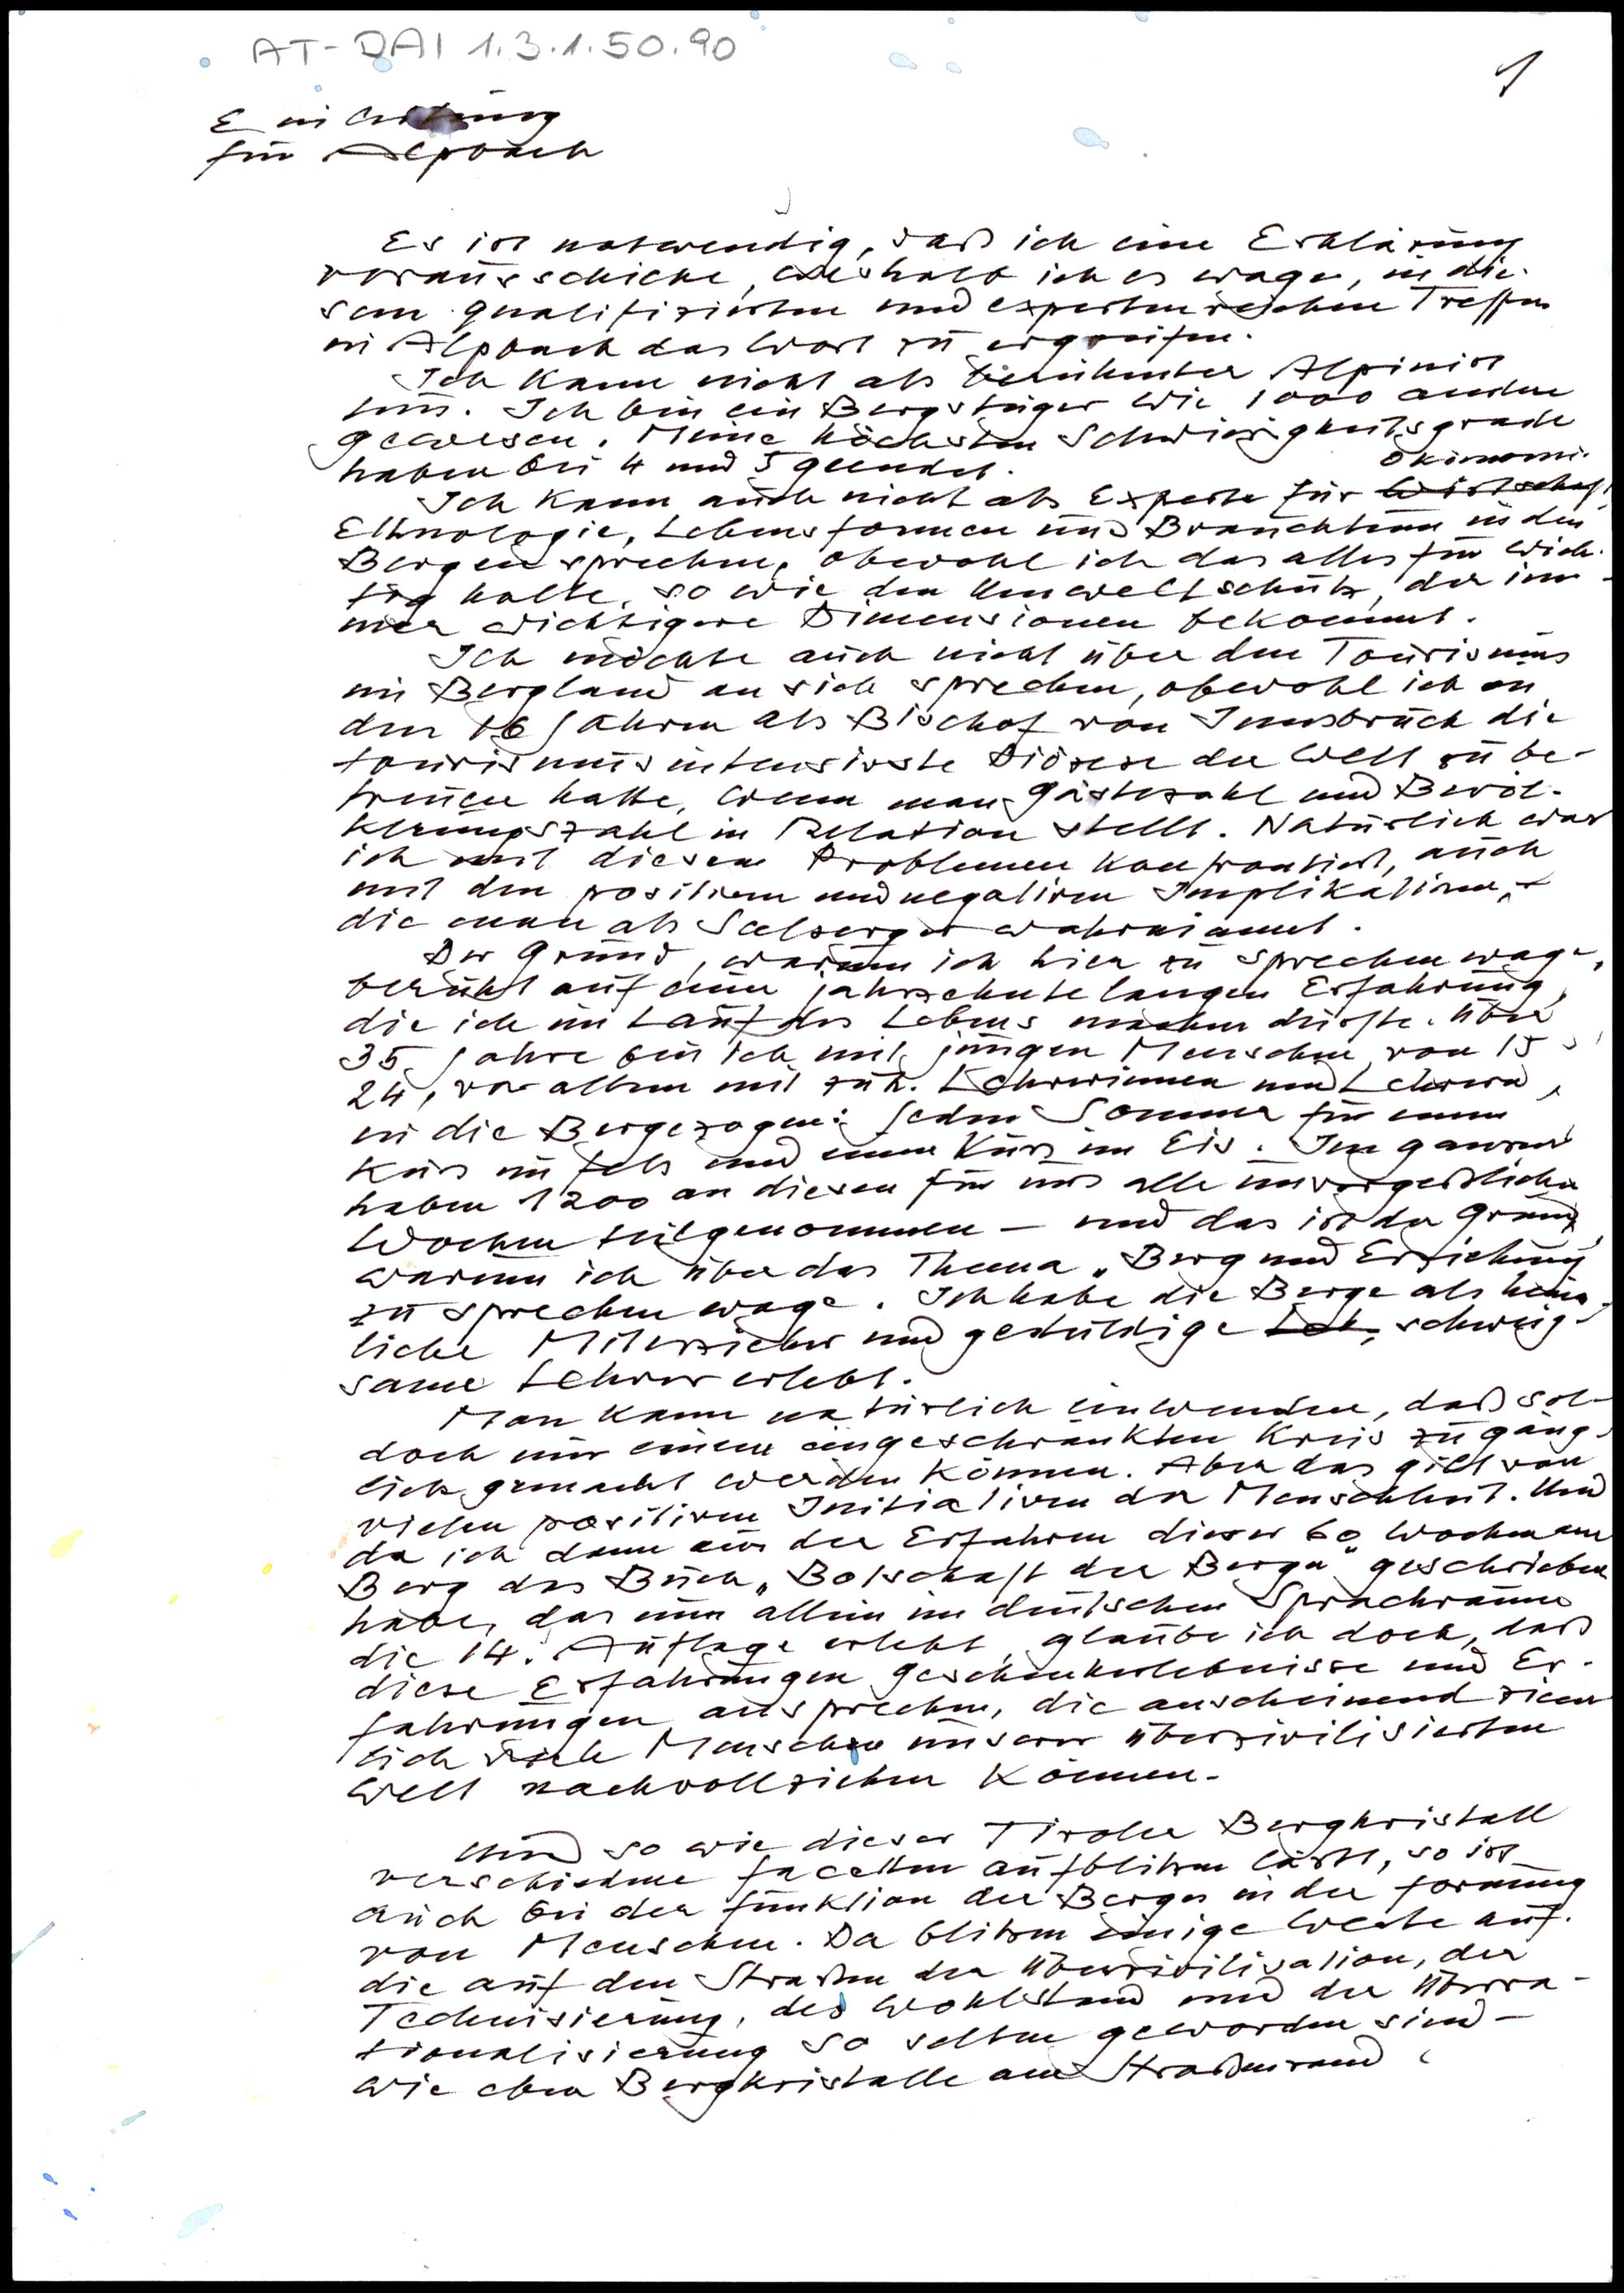 AT-DAI 1.3.1.50.90
1
Einleitung
für Alpbach
Es ist notwendig, daß ich eine Erklärung
vorausschicke, weshalb ich es wage, in die-
sem qualifizierten und expertenreichen Treffen
in Alpbach das Wort zu ergreifen.
Ich kann nicht als berühmter Alpinist
. Ich bin ein Bergsteiger wie 1000 andere
gewesen. Meine höchsten Schwierigkeitsgrade
haben bei 4 und 5 geendet.
Ökonomi.
Ich kann auch nicht als Experte für Wirtschaft
Ethnologie, Lebensformen und Brauchtum in den
Bergen sprechen, obwohl ich das alles für wich-
tig halte, so wie den Umweltschutz, der im-
mer wichtigere Dimensionen bekommt.
Ich möchte auch nicht über den Tourismus
im Bergland an sich sprechen, obwohl ich in
den 16 Jahren als Bischof von Innsbruck die
tourismusintensivste Diözese der Welt zu be-
treuen hatte, wenn man Gästezahl und Bevöl-
kerungszahl in Relation stellt. Natürlich war
ich mit diesen Problemen konfrontiert, auch
mit den positiven und negativen Implikationen,
die man als Seelsorger wahrnimmt.
Der Grund, warum ich hier zu sprechen wage,
beruht auf einer jahrzehntelangen Erfahrung,
die ich im Lauf des Lebens machen durfte. Über
35 Jahre bin ich mit jungen Menschen von 15 -
24, vor allem mit zuk. Lehrerinnen und Lehrern,
in die Berge gezogen: Jeden Sommer für einen
Kurs im Fels und einen Kurs im Eis. Im ganzen
haben 1200 an diesen für uns alle unvergeßlichen
Wochen teilgenommen – und das ist der Grund,
warum ich über das Thema „Berg und Erziehung
zu sprechen wage. Ich habe die Berge als heim-
liche Miterzieher und geduldige Leh, schweig-
same Lehrer erlebt.
Man kann natürlich einwenden, daß sol-
doch nur einem eingeschränkten Kreis zugäng-
lich gemacht werden können. Aber das gilt von
vielen positiven Initiativen der Menschheit. Und
da ich dann aus der Erfahren dieser 60 Wochen am
Berg das Buch „Botschaft der Berge" geschrieben
habe, das nun allein im deutschen Sprachraum
die 14. Auflage erlebt, glaube ich doch, daß
diese Erfahrungen Geschenkerlebnisse und Er-
fahrungen ansprechen, die anscheinend ziem
lich viele Menschen unserer überzivilisierten
Welt nachvollziehen können.
Und so wie dieser Tiroler Bergkristall
verschiedene Facetten aufblitzen läßt, so ist
auch bei der Funktion der Berge in der Formung
von Menschen. Da blitzen einige Werte auf.
die auf den Straßen der Überzivilisation, der
Technisierung, des Wohlstand und der Überra-
tionalisierung so selten geworden sind –
wie eben Bergkristalle am Straßenrand.